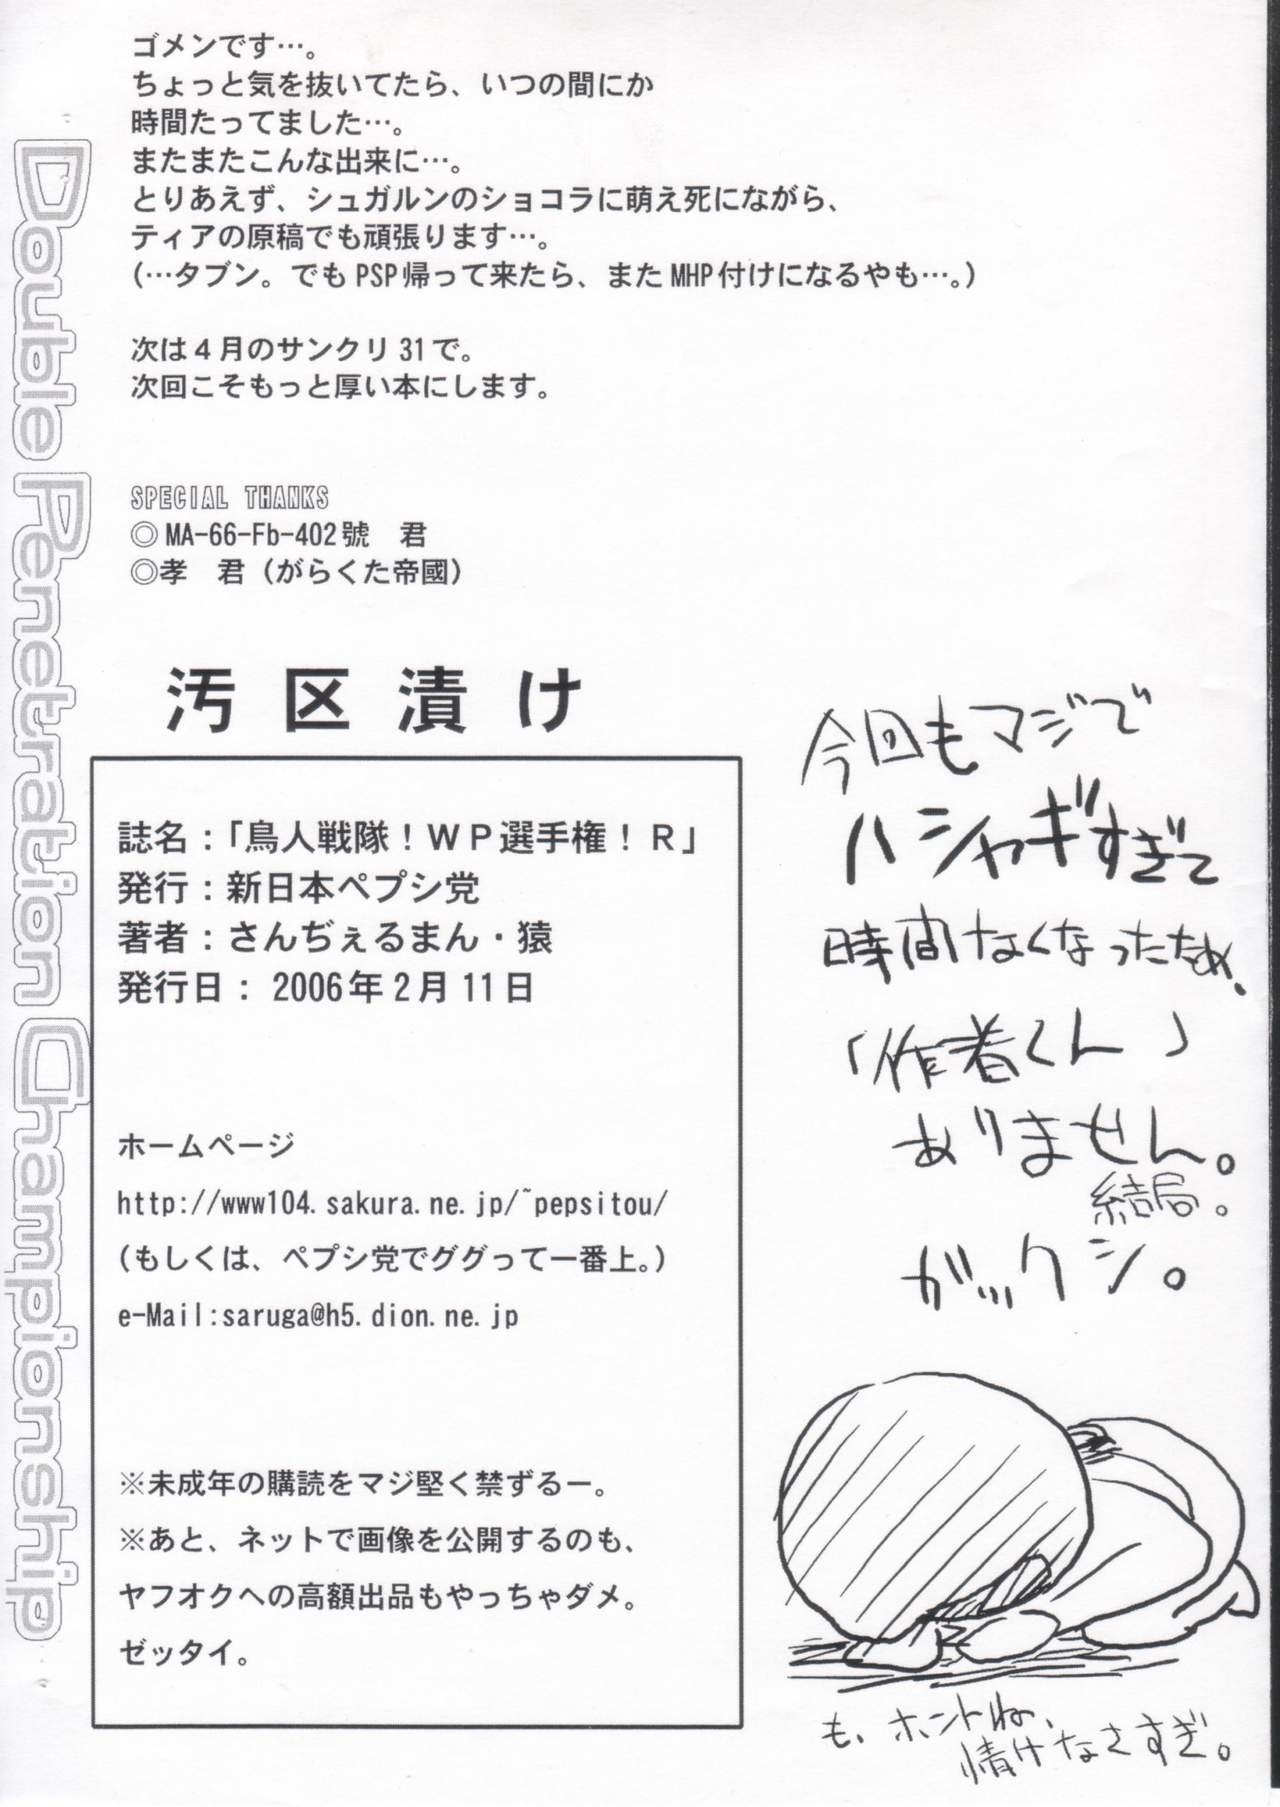 Double Penetration Championship
ゴメンです…。
ちょっと気を抜いてたら、いつの間にか
時間たってました…。
またまたこんな出来に…。
とりあえず、シュガルンのショコラに萌え死にながら、
ティアの原稿でも頑張ります…。
(…タブン。でもPSP帰って来たら、またMHP付けになるやも…。)
次は４月のサンクリ31で。
次回こそもっと厚い本にします。
SPECIAL THANKS
◎MA-66-Fb-402號　君
◎孝　君（がらくた帝國）
汚区漬け
誌名：「鳥人戦隊！ＷＰ選手権！Ｒ」
発行：新日本ペプシ党
著者：さんぢぇるまん・猿
発行日： 2006年２月11日
ホームページ
http://www104.sakura.ne.jp/~pepsitou/
(もしくは、ペプシ党でググって一番上。)
e-Mail:saruga@h5.dion.ne.jp
※未成年の購読をマジ堅く禁ずるー。
※あと、ネットで画像を公開するのも、
ヤフオクへの高額出品もやっちゃダメ。
ゼッタイ。
今回もマジで
ハシャギすぎて
時間なくなったため、
「作者くん」
ありません。
結局。
ガックシ。
も、ホントね、
情けなさすぎ。